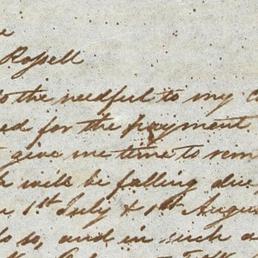 Rossell
to the needful to my
for the payment
give me time to rem
will be falling due
1st July & 1st Augu
to so, and in such a